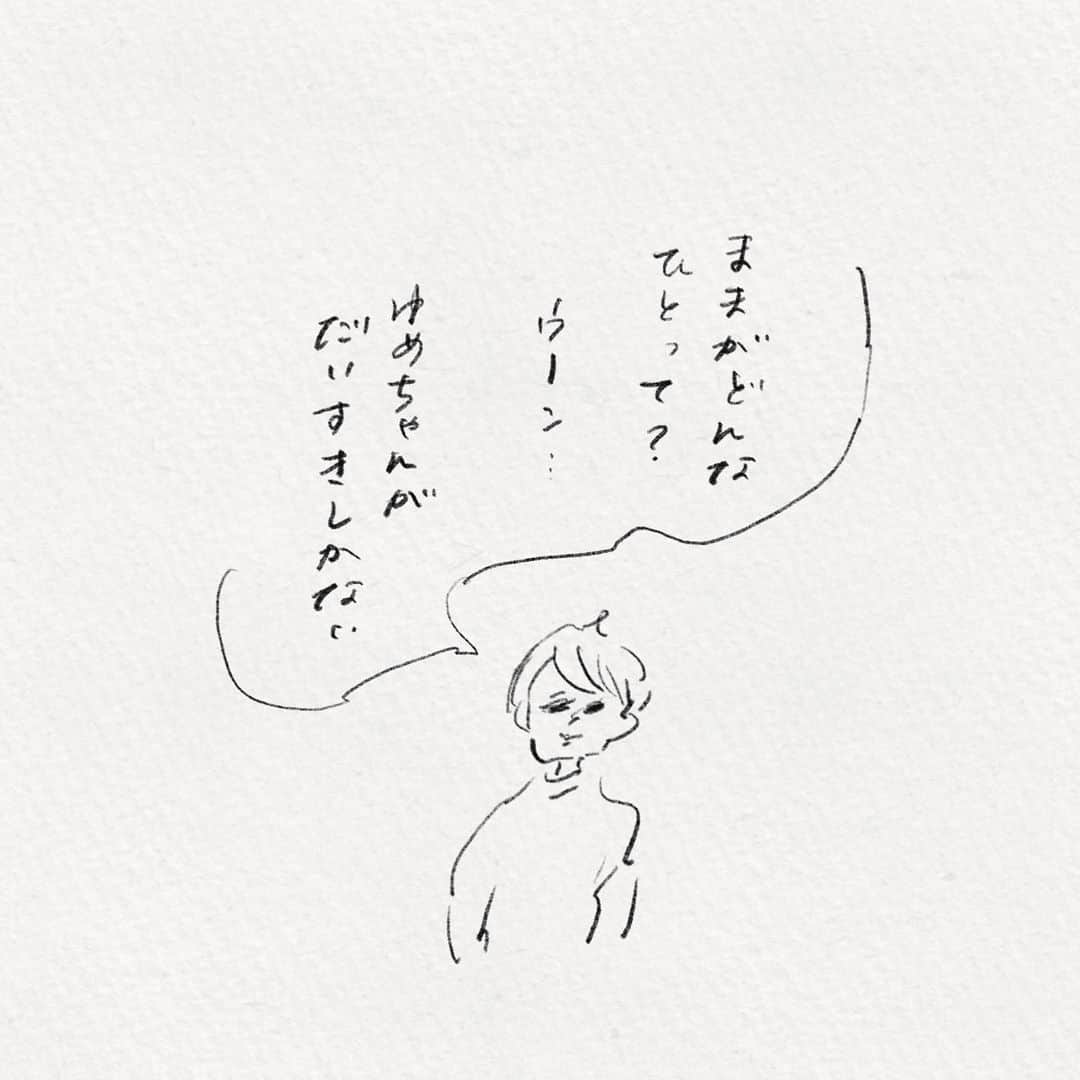 ままがどんな
ひとって?
ウーン…
ゆめちゃんが
だいすきしかない